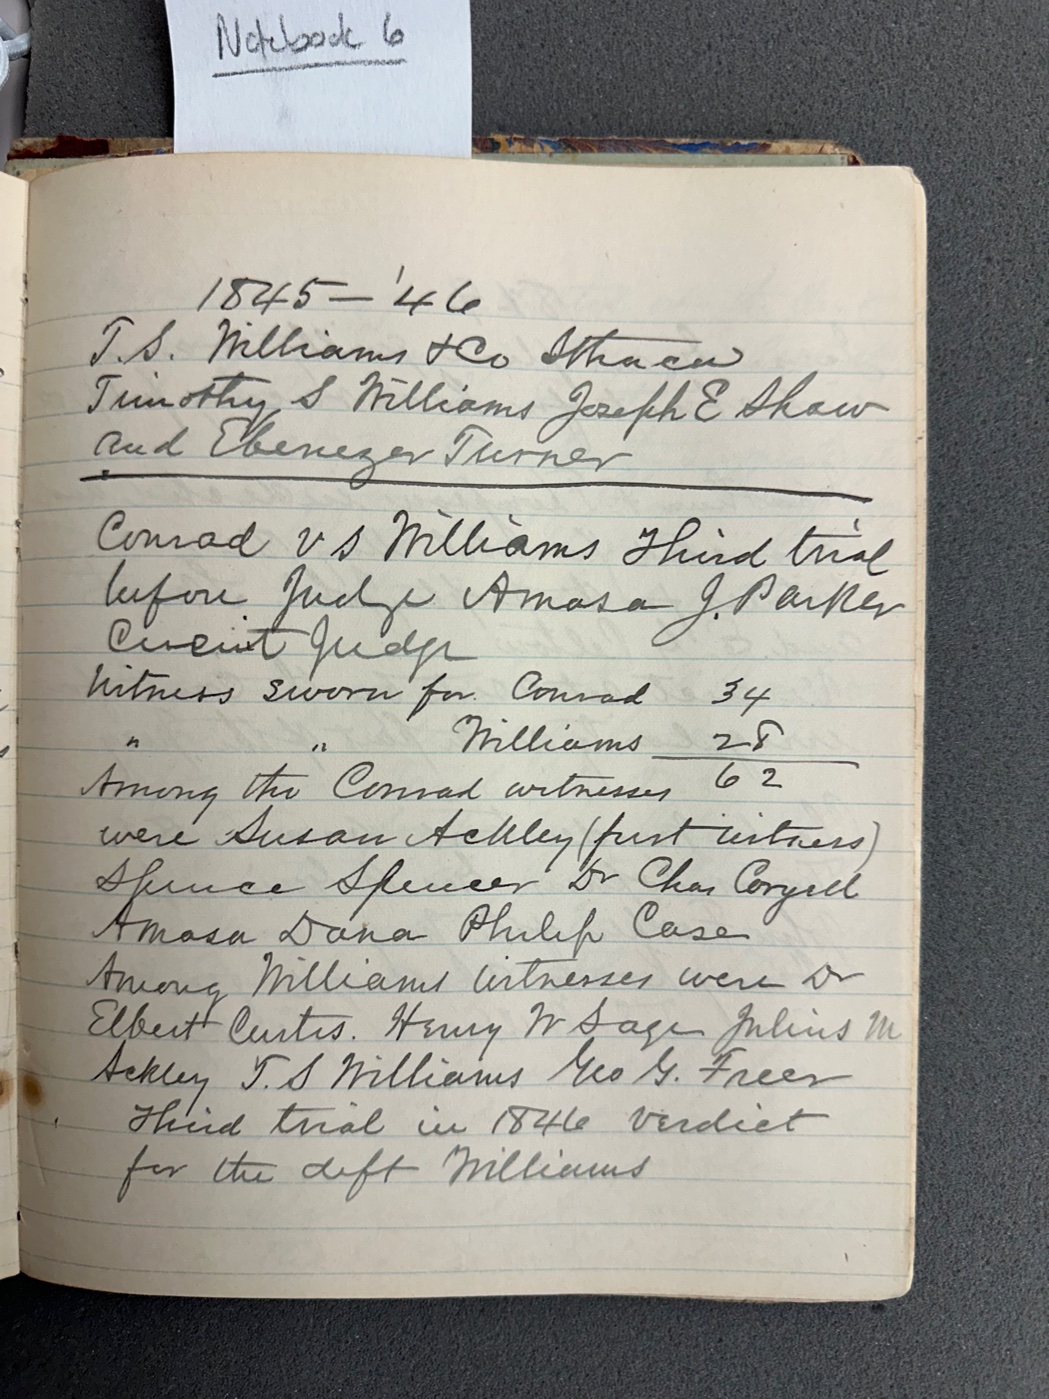 Notebook 6
1845–'46
T.S. Williams & Co Ithaca
Timothy S Williams Joseph E Shaw
and Ebenezer Turner
Conrad vs Williams Third trial
before Judge Amasa J. Parker
Circuit Judge
Witness sworn for Conrad 34
" " Williams 28
62
Among the Conrad witnesses
were Susan Ackley (first witness)
Spence Spencer Dr Chas Coryell
Amasa Dana Philip Case
Among Williams witnesses were Dr
Elbert Curtis. Henry W Sage Julius M
Ackley T. S Williams Geo G. Freer
Third trial in 1846 verdict
for the deft Williams